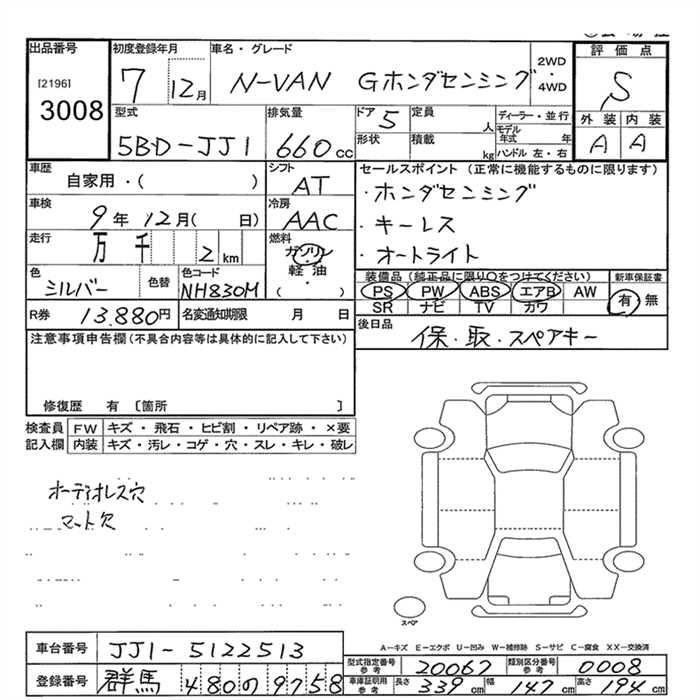 出品番号 初度登録年月 車名・グレード 2WD・4WD 評価点
[2196]
3008 7 12月 N-VAN Gホンダセンシング S
型式 排気量 ドア 5 定員 人 ディーラー・並行 外装 内装
5BD-JJ1 660cc 形状 積載 kg モデル年式 年 ハンドル 左・右 A A
車歴 シフト セールスポイント(正常に機能するものに限ります)
自家用・( ) AT ・ホンダセンシング
車検 冷房 ・キーレス
9年 12月( 日) AAC ・オートライト
走行 燃料
万 千 2 km ガソリン 軽油 ( )
装備品(純正品に限り○をつけてください) 新車保証書
色 色替 色コード PS PW ABS エアB AW 有・無
シルバー NH830M SR ナビ TV カワ
R券 13,880円 名変通知期限 月 日 後日品
保・取・スペアキー
注意事項申告欄(不具合内容等は具体的に記入して下さい)
修復歴 有 〔箇所 〕
検査員 FW キズ・飛石・ヒビ割・リペア跡・×要
記入欄 内装 キズ・汚レ・コゲ・穴・スレ・キレ・破レ
オーディオレス穴
マット欠
スペア
車台番号 JJ1-5122513
A-キズ E-エクボ U-凹み W-補修跡 S-サビ C-腐食 XX-交換済
型式指定番号 参考 20067 類別区分番号 参考 0008
登録番号 群馬 480の9758
車庫証明用 参考 長さ 339cm 幅 147cm 高さ 194cm